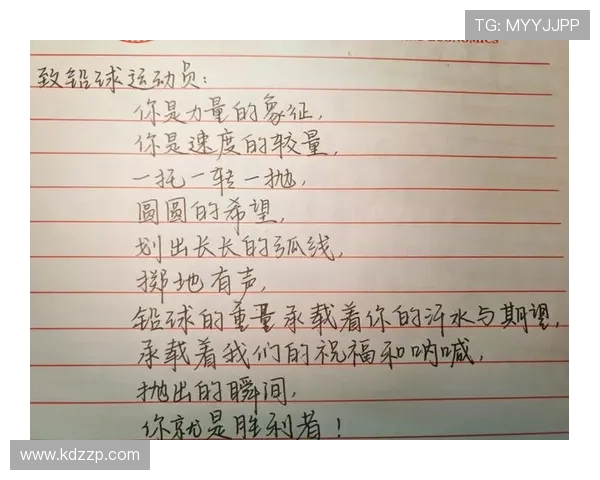 TG: MYYJJPP
致铅球运动员:
你是力量的象征,
你是速度的较量,
一托一转一抛,
圆圆的希望,
划出长长的弧线,
掷地有声,
铅球的重量承载着你的汗水与期望,
承载着我们的祝福和呐喊,
抛出的瞬间,
你就是胜利者!
www.kdzzp.com